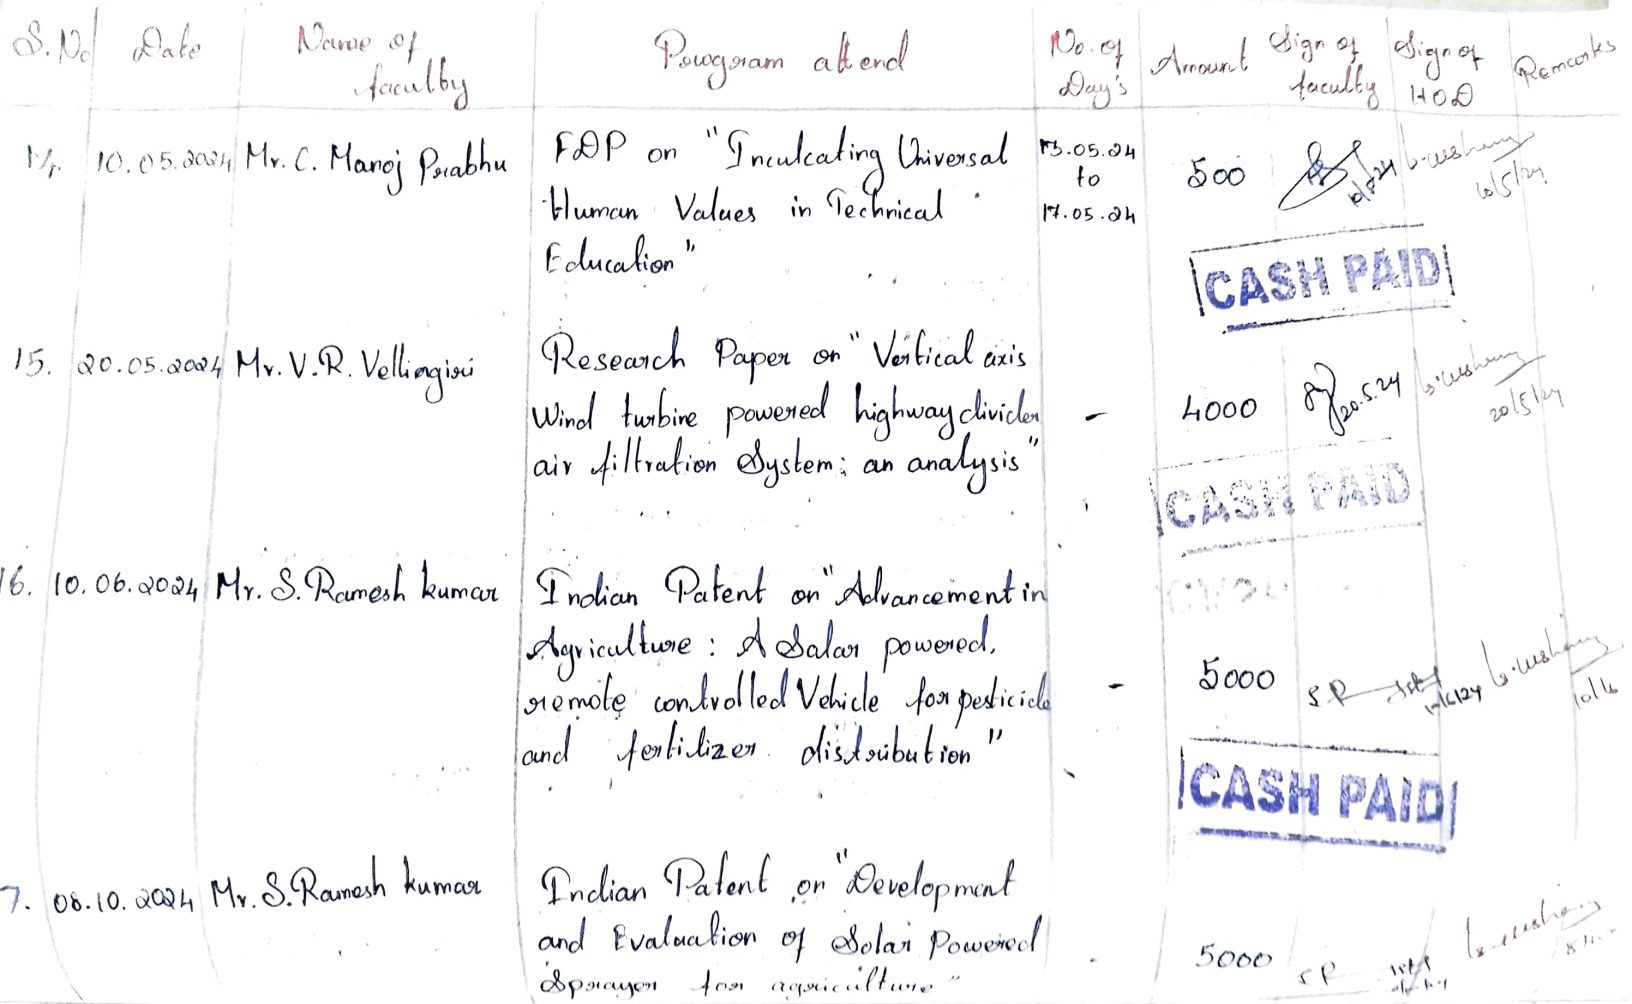 S.No Date Name of faculty Program attend No. of Day's Amount Sign of faculty Sign of HOD Remarks
14. 10.05.2024 Mr. C. Manoj Prabhu FDP on "Inculcating Universal 13.05.24
Human Values in Technical to 500 10/5/24
Education" 17.05.24
CASH PAID
15. 20.05.2024 Mr. V.R. Velliangiri Research Paper on "Vertical axis
Wind turbine powered highway divider - 4000 20.5.24 20/5/24
air filtration System: an analysis"
CASH PAID
16. 10.06.2024 Mr. S. Ramesh kumar Indian Patent on "Advancement in
Agriculture: A Solar powered,
remote controlled Vehicle for pesticide - 5000
and fertilizer distribution"
CASH PAID
7. 08.10.2024 Mr. S. Ramesh kumar Indian Patent on "Development
and Evaluation of Solar Powered - 5000
Sprayer for agriculture"